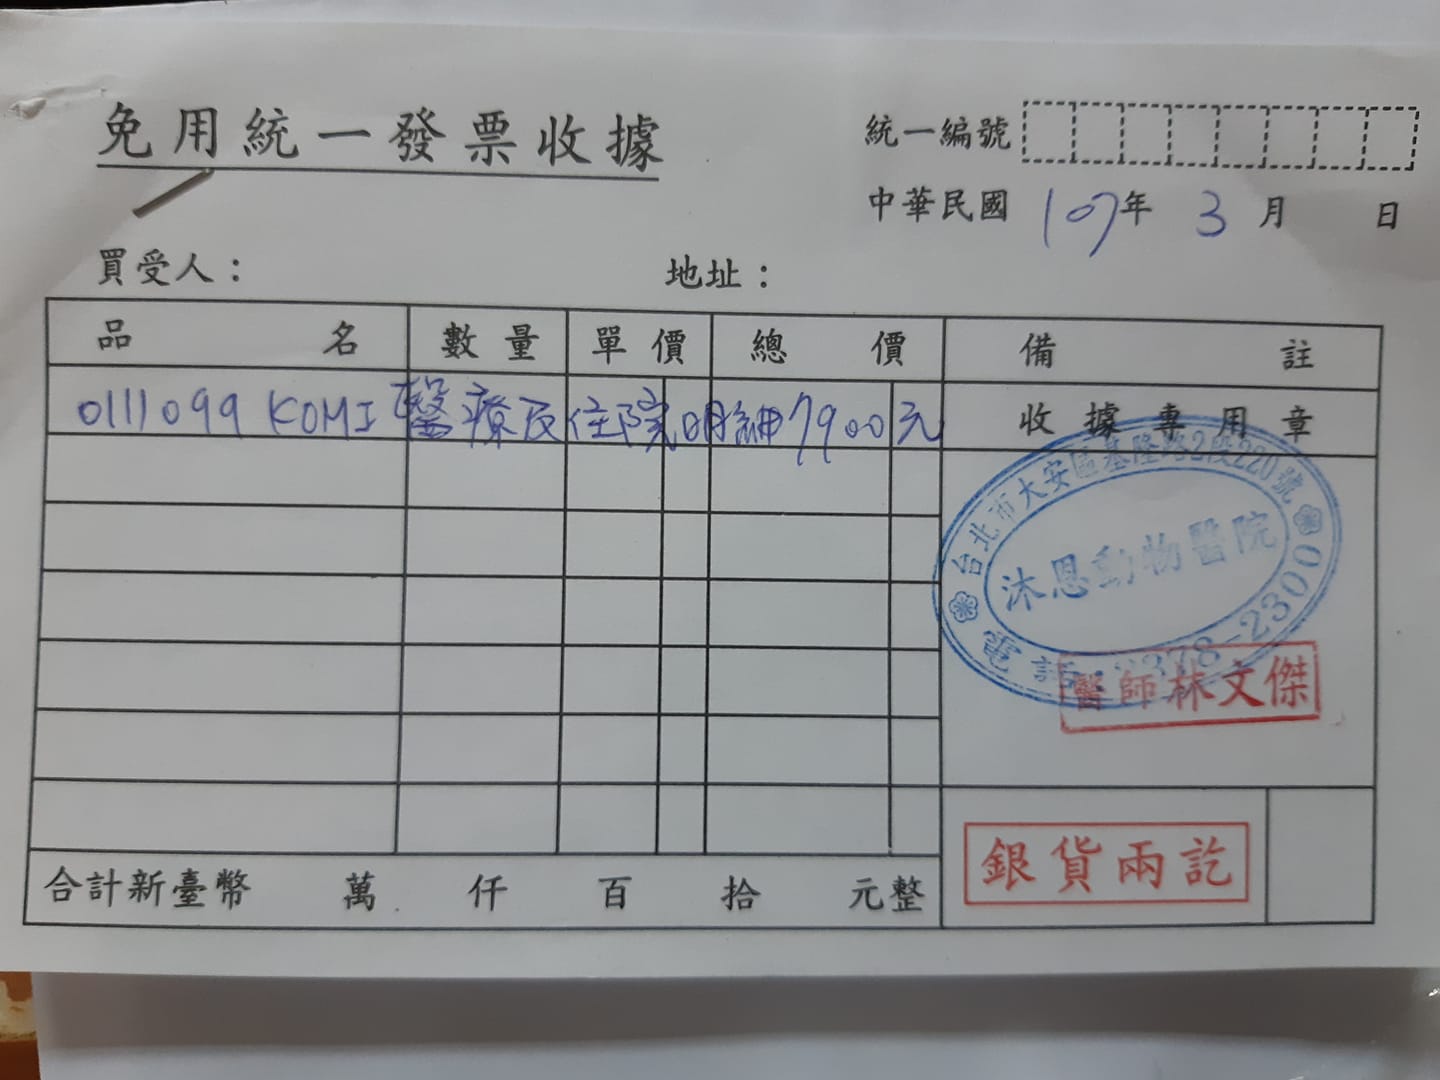 免用統一發票收據
統一編號
中華民國 107年 3月 日
買受人： 地址：
品名 數量 單價 總價 備註
0111099 KOMI 醫療及住院明細7900元 收據專用章
台北市大安區基隆路2段220號
沐恩動物醫院
電話 2378-2300
醫師林文傑
合計新臺幣 萬 仟 百 拾 元整
銀貨兩訖